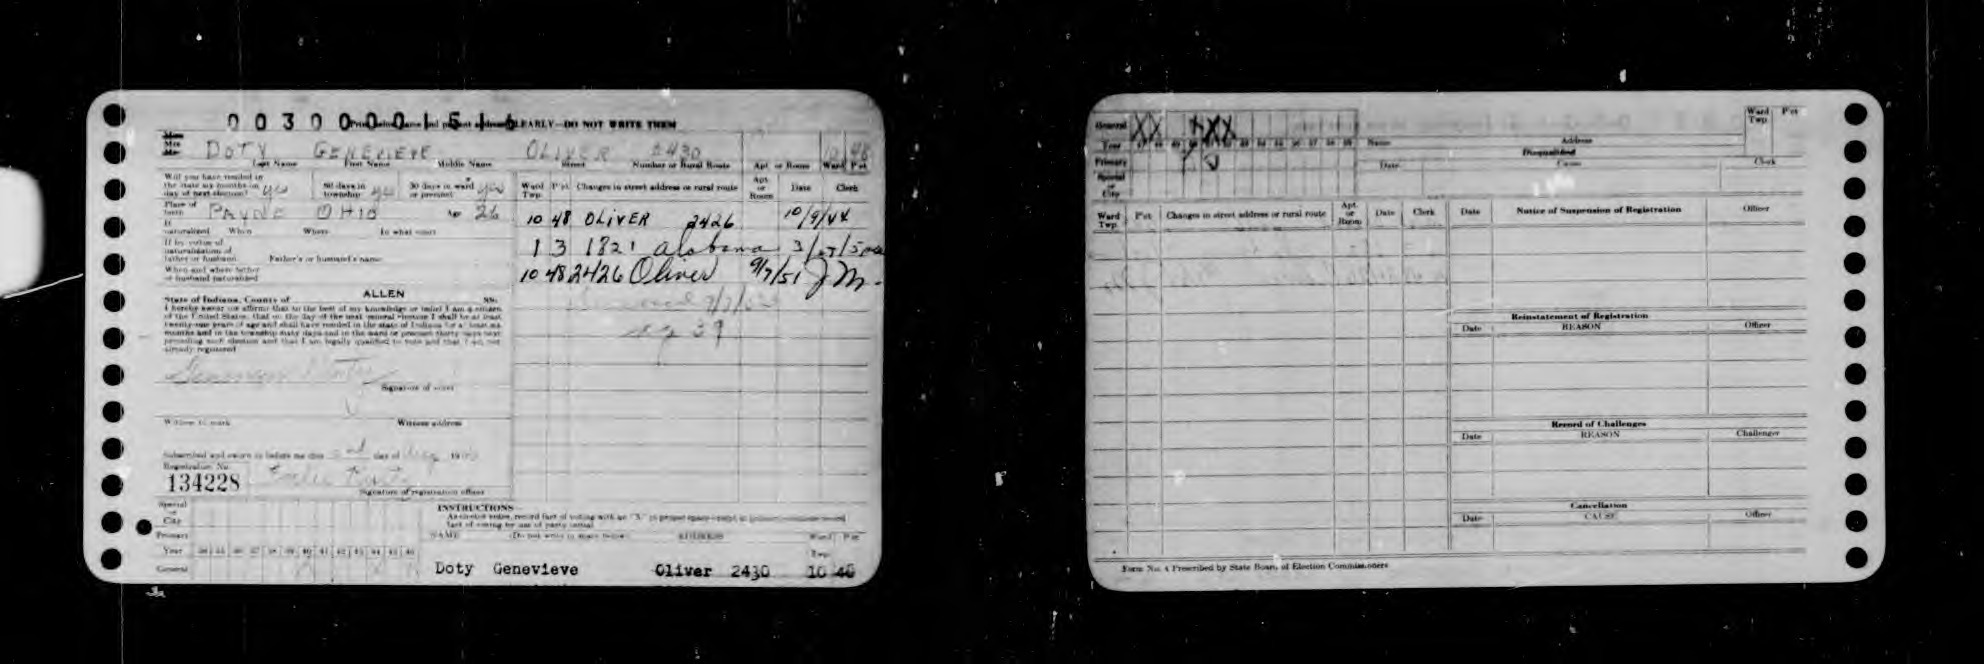 0030000151
Print below name and present address CLEARLY—DO NOT WRITE THEM
DOTY GENEVIEVE OLIVER 2430 10 48
Last Name First Name Middle Name Street Number or Rural Route Apt. or Room Ward Pct
Will you have resided in the state six months on day of next election? yes 60 days in township yes 30 days in ward or precinct yes
Place of birth PAYNE OHIO Age 26
If naturalized When Where In what court
If by virtue of naturalization of father or husband Father's or husband's name
When and where father or husband naturalized
State of Indiana, County of ALLEN SS:
I hereby swear (or affirm) that to the best of my knowledge or belief I am a citizen
of the United States, that on the day of the next general election I shall be at least
twenty-one years of age and shall have resided in the state of Indiana for at least six
months and in the township sixty days and in the ward or precinct thirty days next
preceding such election and that I am legally qualified to vote and that I am not
already registered
Signature of voter
Witness to mark Witness address
Subscribed and sworn to before me this 2nd day of
Registration No.
134228
Signature of registration officer
Ward Twp. Pct. Changes in street address or rural route Apt. or Room Date Clerk
10 48 OLIVER 2426 10/9/44
1 3 1821 Alabama
10 48 2426 Oliver 9/7/51 JM.
39
Special or City
Primary
Year 34 35 36 37 38 39 40 41 42 43 44 45 46
General
INSTRUCTIONS—
NAME (Do not write in space below) ADDRESS Ward Twp. Pct
Doty Genevieve Oliver 2430 10 48
General XX XXX
Year 47 48 49 50 51 52 53 54 55 56 57 58 59
Primary
Special or City
Name Address Ward Twp. Pct
Disqualified
Date Cause Clerk
Ward Twp. Pct. Changes in street address or rural route Apt. or Room Date Clerk
Date Notice of Suspension of Registration Officer
Reinstatement of Registration
Date REASON Officer
Record of Challenges
Date REASON Challenger
Cancellation
Date CAUSE Officer
Form No. 4 Prescribed by State Board of Election Commissioners